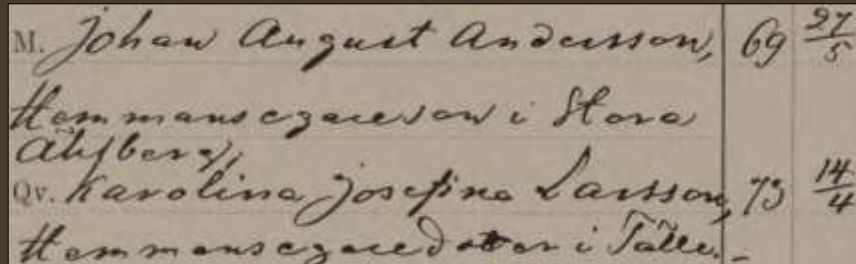 M. Johan August Andersson, 69 27/5
Hemmansegareson i Stora
Älgsberg,
Qv. Karolina Josefina Larsson, 73 14/4
Hemmansegaredotter i Tälle.-